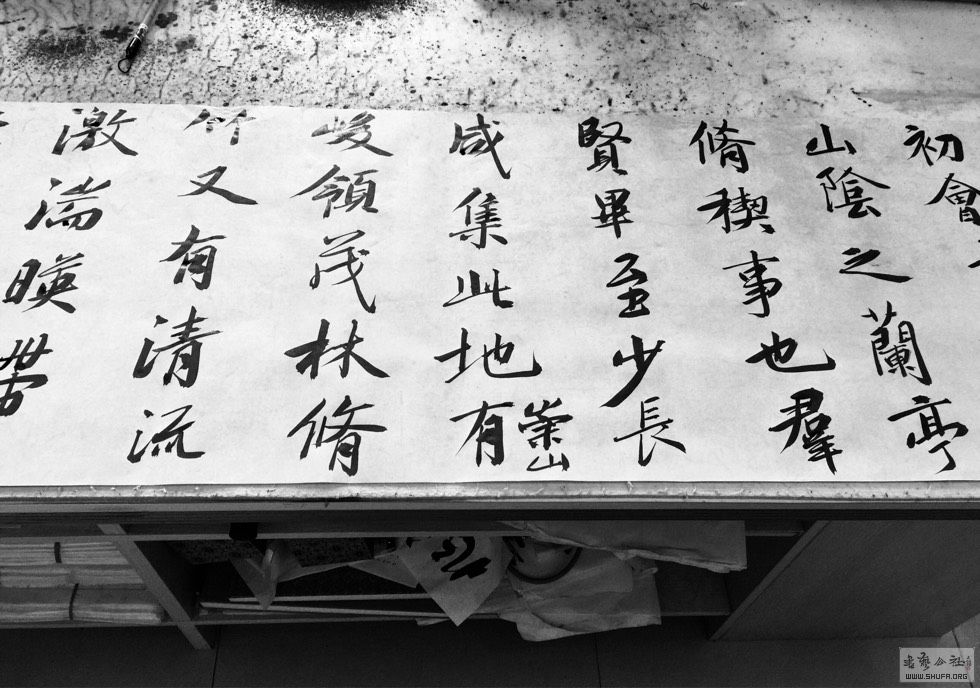 初會
山陰之蘭亭
脩稧事也羣
賢畢至少長
咸集此地有崇山
峻領茂林脩
竹又有清流
激湍暎帶
書藝公社
WWW.SHUFA.ORG